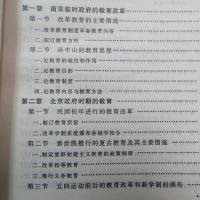 第一章 南京临时政府的教育改革
第一节 改革教育的主要措施
一、改革教育制度革新教育内容
二、拟订教育方针
第二节 孙中山的教育思想
一、论教育的地位和作用
二、论教育目的
三、论教育制度
四、论教育内容与教育方法
第二章 北京政府时期的教育
第一节 民国初年进行的教育改革
一、制订教育宗旨
二、改革学制系统颁布各级学校令
第二节 袁世凯推行的复古教育及其主要措施
一、制定贯彻封建主义教育的政策纲领
二、改革初等教育
三、推行义务教育
第三节 五四运动前后的教育改革和新学制的颁布